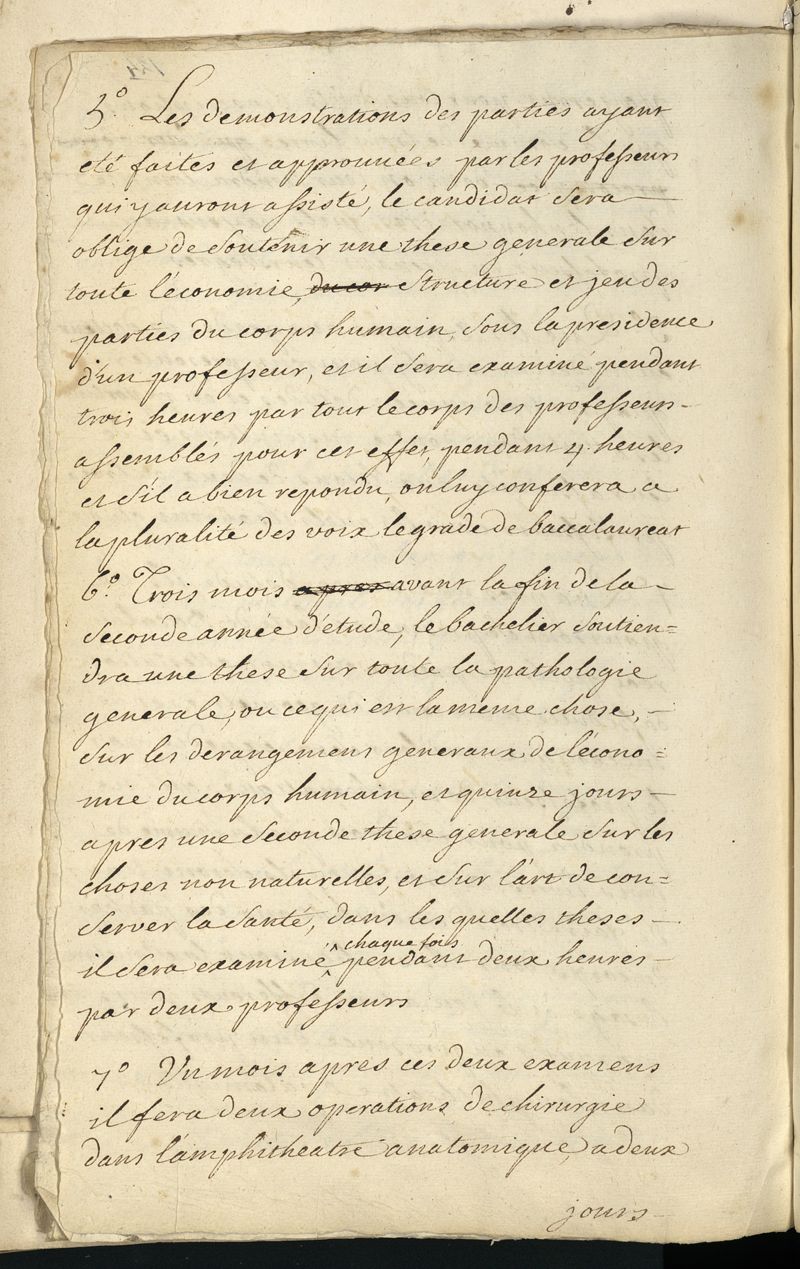 5.° Les demonstrations des parties ayant
eté faites et approuuées par les professeurs
qui y auront assisté, le candidat sera
oblige de soutenir une these generale sur
toute l'économie, du cor structure et jeu des
parties du corps humain, sous la presidence
d'un professeur, et il sera examiné pendant
trois heures par tout le corps des professeurs
assemblés pour cet effet, pendant 4 heures
et s'il a bien repondu, on luy conferera a
la pluralité des voix le grade de baccalaureat
6.° Trois mois apres avant la fin de la
seconde année d'étude, le bachelier soutien=
dra une these sur toute la pathologie
generale, ou ce qui est la meme chose,
sur les derangemens generaux de l'écono=
mie du corps humain, et quinze jours
apres une seconde these generale sur les
choses non naturelles, et sur l'art de con=
server la santé, dans les quelles theses
chaque fois
il sera examiné ^ pendant deux heures
par deux professeurs
7° Un mois apres ces deux examens
il fera deux operations de chirurgie
dans l'amphitheatre anatomique, a deux
jours